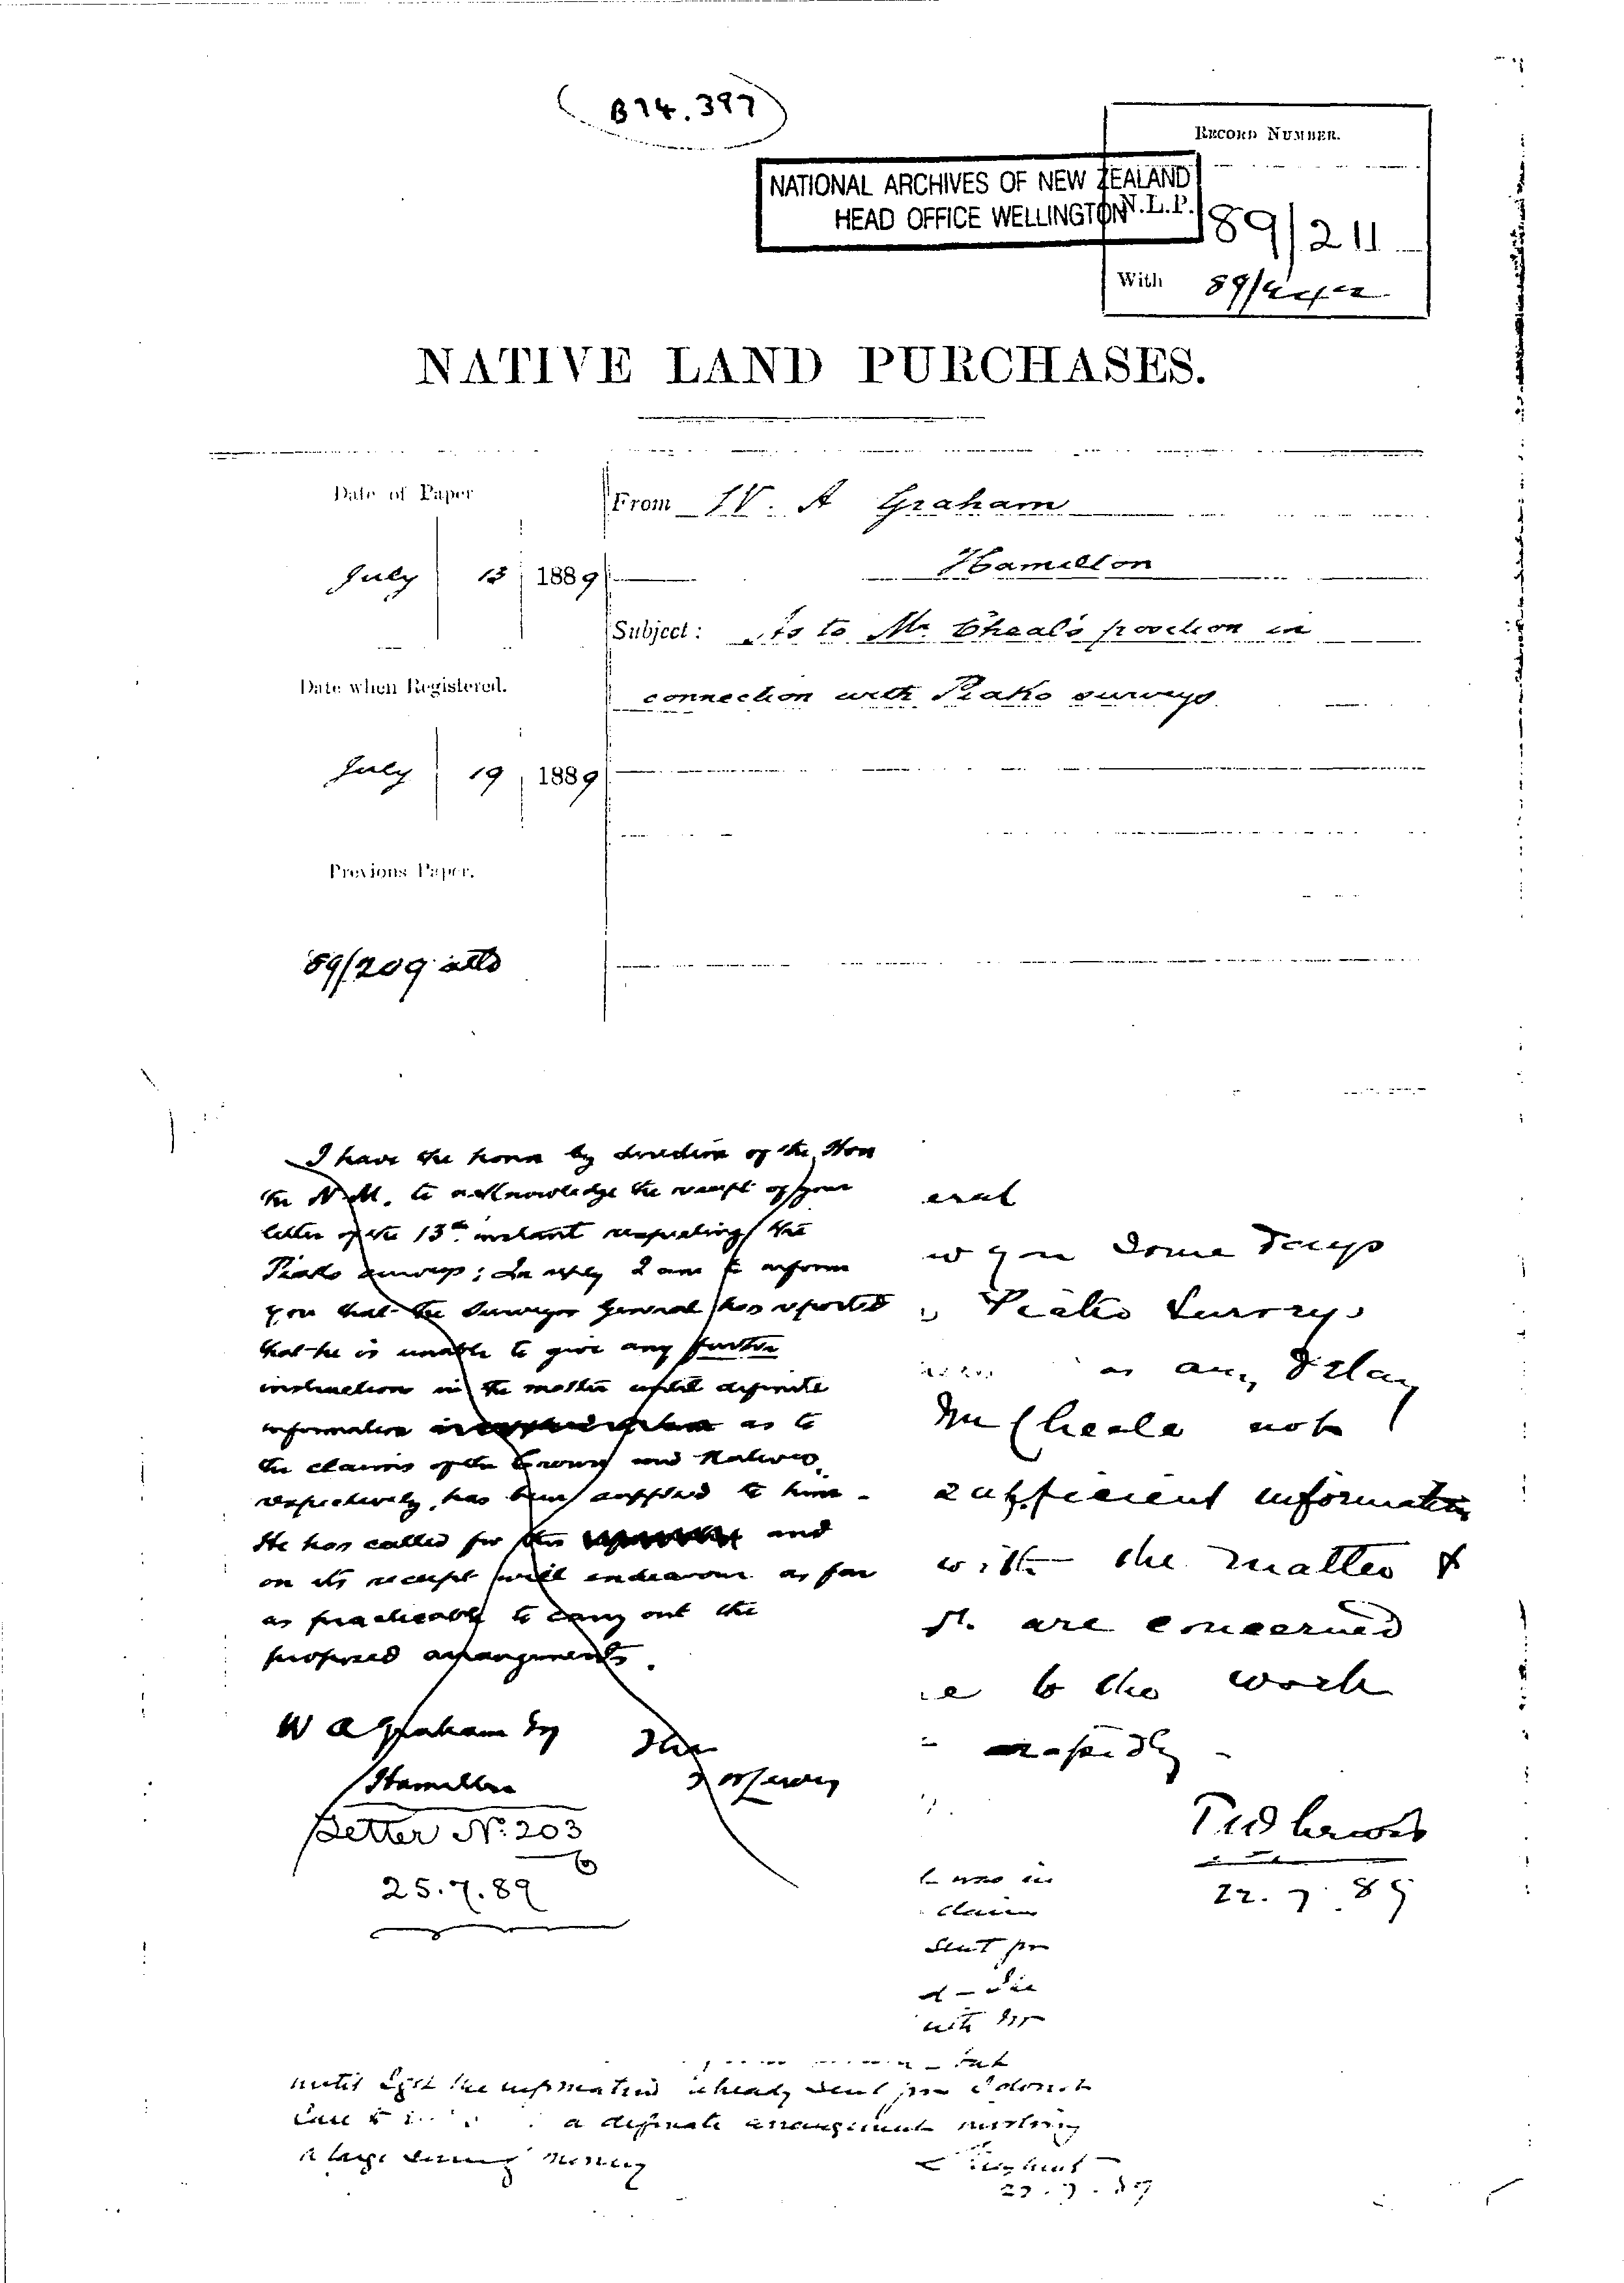 B74.397
RECORD NUMBER.
NATIONAL ARCHIVES OF NEW ZEALAND
HEAD OFFICE WELLINGTON
N.L.P.
89/211
With 89/
NATIVE LAND PURCHASES.
Date of Paper
From W. A Graham
Hamilton
July 13 1889
Subject: As to Mr Cheal's position in
connection with Piako surveys
Date when Registered.
July 19 1889
Previous Paper.
89/209 attd
I have the honor by direction of the Hon
the N.M. to acknowledge the receipt of your
letter of the 13th instant respecting the
Piako surveys; In reply I am to inform
you that the Surveyor General has reported
that he is unable to give any further
instructions in the matter until definite
information as to
the claims of the Crown and Natives
respectively, has been supplied to him.
He has called for this and
on its receipt will endeavour as far
as practicable to carry out the
proposed arrangements.
W A Graham Esq
Hamilton
Letter No. 203
25.7.89
eral
some days
Piako Surveys
as any delay
Mr Cheale not
sufficient information
with the matter &
are concerned
to the work
rapidly
22.7.89
was in
claim
sent for
until I get the information already sent for I do not
care to a definite arrangement involving
a large survey money